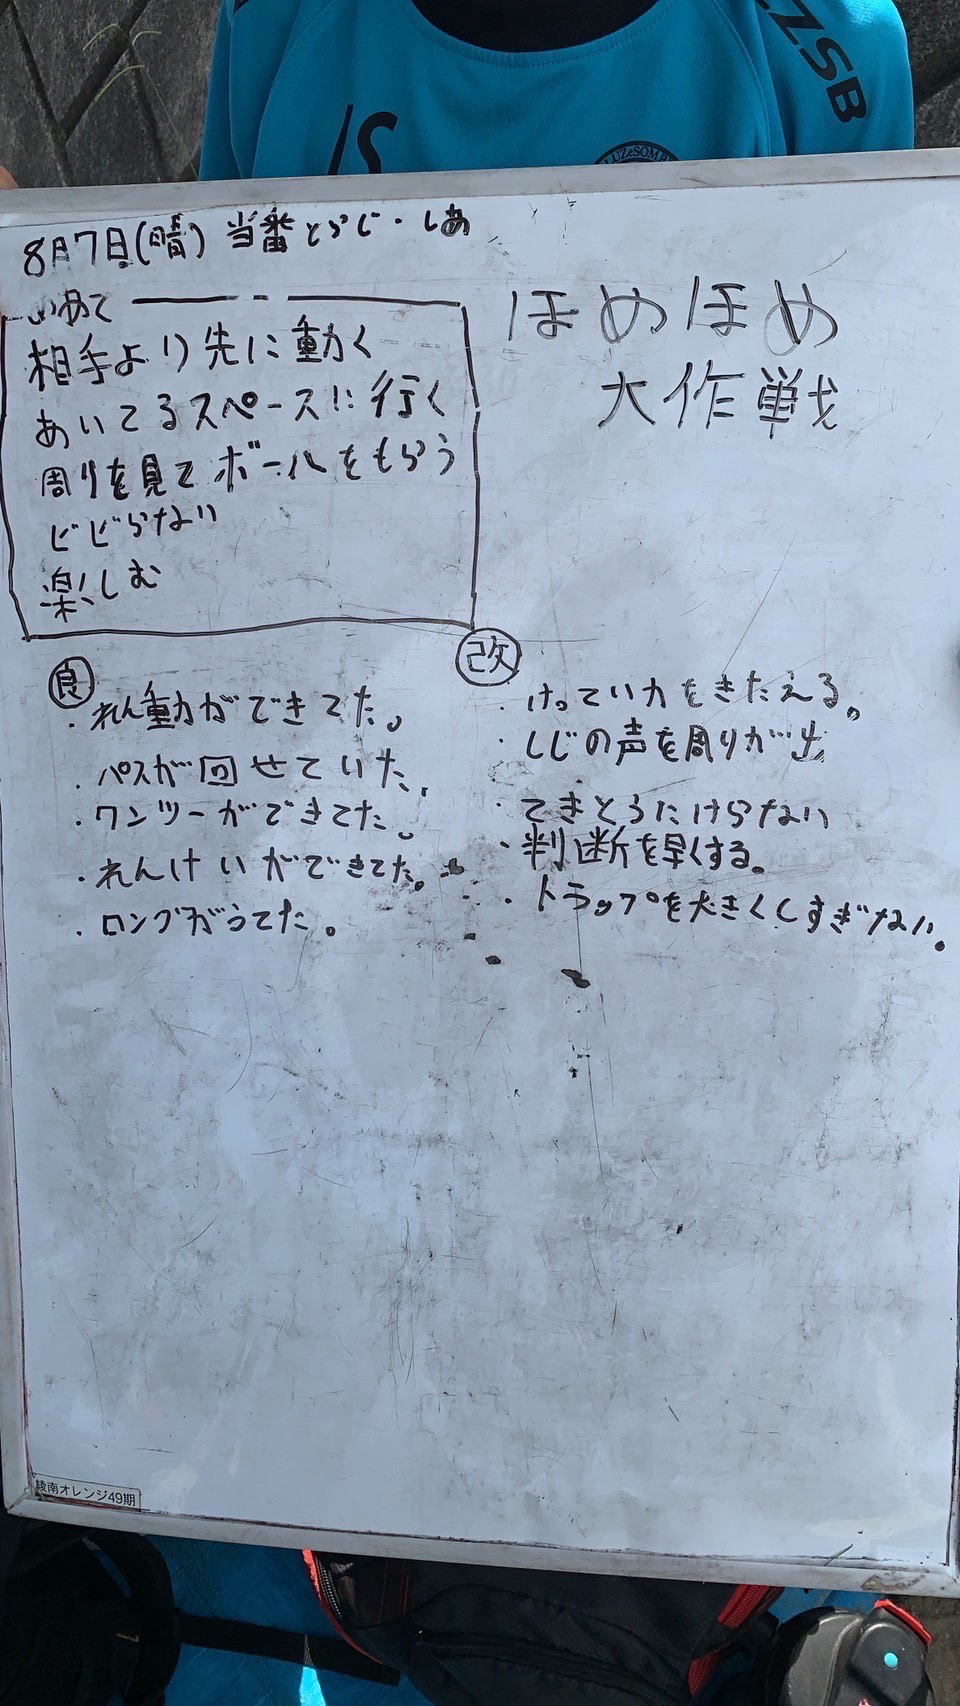 ZSB
LUZeSOMB
8月7日(晴) 当番とらじ・しあ
めあて
相手より先に動く
あいてるスペースに行く
周りを見てボールをもらう
ビビらない
楽しむ
ほめほめ
大作戦
良
・れん動ができてた。
・パスが回せていた。
・ワンツーができてた。
・れんけいができてた。
・ロングがうてた。
改
・けってい力をきたえる。
・しじの声を周りが出
・てきとうにけらない
・判断を早くする。
・トラップを大きくしすぎない。
綾南オレンジ49期